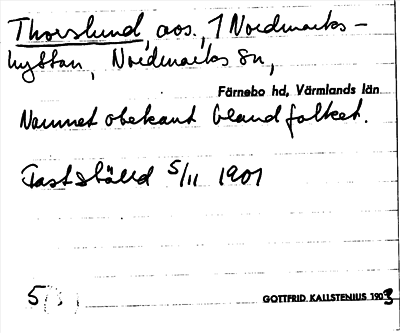 Thorslund, avs., 1 Nordmarks-
hyttan, Nordmarks sn,
Färnebo hd, Värmlands län
Namnet obekant bland folket.
Fastställd 5/11 1901
5
GOTTFRID KALLSTENIUS 1903